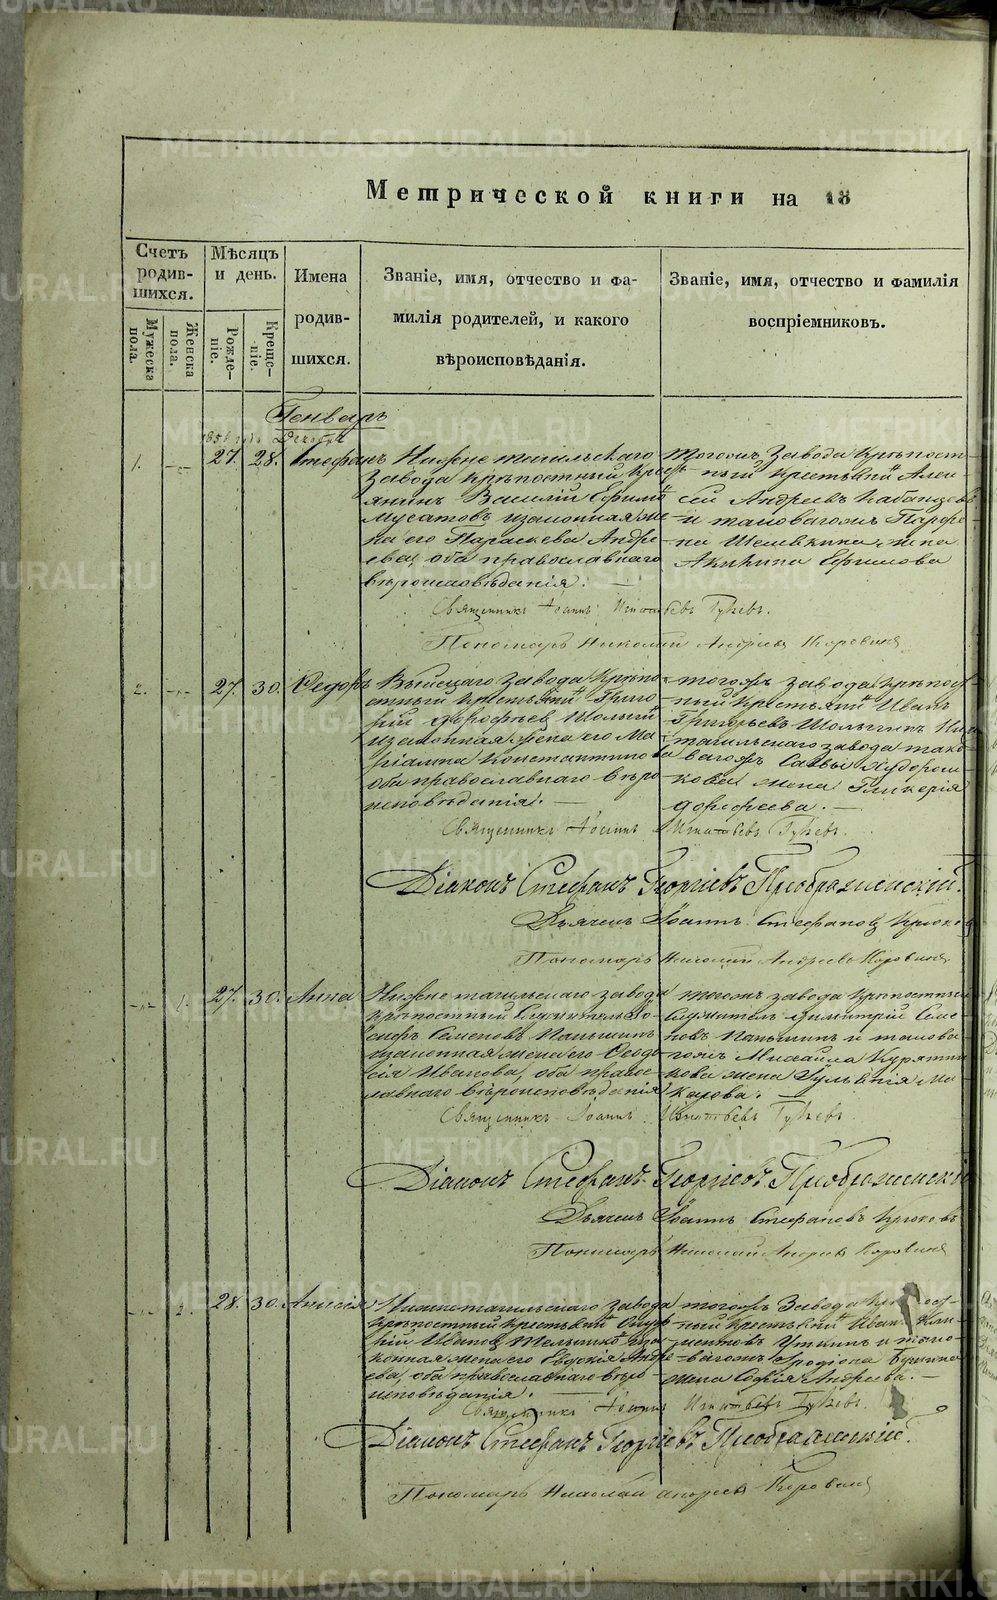 METRIKI.GASO-URAL.RU
Метрической книги на 18
Счетъ родив-шихся.
Мужеска пола.
Женска пола.
Мѣсяцъ и день.
Рожде-ніе.
Креще-ніе.
Имена родив-шихся.
Званіе, имя, отчество и фа-
милія родителей, и какого
вѣроисповѣданія.
Званіе, имя, отчество и фамилія
воспріемниковъ.
Генварь
Декабря
1. 27. 28. Стефанъ
Нижнетагильскаго
завода крѣпостный крест
янинъ Василій Ефимо
Мусатовъ и законная же
на его Параскева Андре
ева, оба православнаго
вѣроисповѣданія.
Тогожъ Завода Крѣпост
ный Крестьянинъ Алек
сѣй Андреевъ Кабанцевъ
и таковагожъ Парфе
на жена
Акилина Ефимова
Священникъ Іоаннъ Игнатьевъ
Пономарь Николай Андреевъ Коровинъ
2. 27. 30. Федоръ
Выйскаго завода Крѣпо
стный крестьянинъ Григо
рій Дорофеевъ
и законная жена его Ма
Константинова
оба православнаго вѣро
исповѣданія.
тогожъ завода крѣпост
ный крестьянинъ Иванъ
Григорьевъ
тагильскаго завода тако
вагожъ Саввы
кова жена Гликерія
Дорофеева.
Священникъ Іоаннъ Игнатьевъ
Діаконъ Стефанъ Георгіевъ Преображенскій.
Дьячекъ Іоаннъ Стефановъ Крюковъ
Пономарь Николай Андреевъ Коровинъ
1. 27. 30. Анна
Нижнетагильскаго завода
крѣпостный Служитель Іо
сифъ Семеновъ Паньшинъ
и законная жена его Ѳеодо
сія Иванова, оба право
славнаго вѣроисповѣданія
тогожъ завода крѣпостный
служитель Димитрій Семе
новъ Паньшинъ и такова
гожъ Михаила Курятни
кова жена
Макарова.
Священникъ Іоаннъ Игнатьевъ
Діаконъ Стефанъ Георгіевъ Преображенскій
Дьячекъ Іоаннъ Стефановъ Крюковъ
Пономарь Николай Андреевъ Коровинъ
2. 28. 30. Анисія
Нижнетагильскаго завода
крѣпостный крестьянинъ
Ивановъ и за
конная жена его Евдокія Андре
ева, оба православнаго вѣро
исповѣданія.
тогожъ Завода крѣпост
ный крестьянинъ Иванъ
Уткинъ и тако
вагожъ Родіона
жена Софія Андреева.
Священникъ Іоаннъ Игнатьевъ
Діаконъ Стефанъ Георгіевъ Преображенскій.
Пономарь Николай Андреевъ Коровинъ